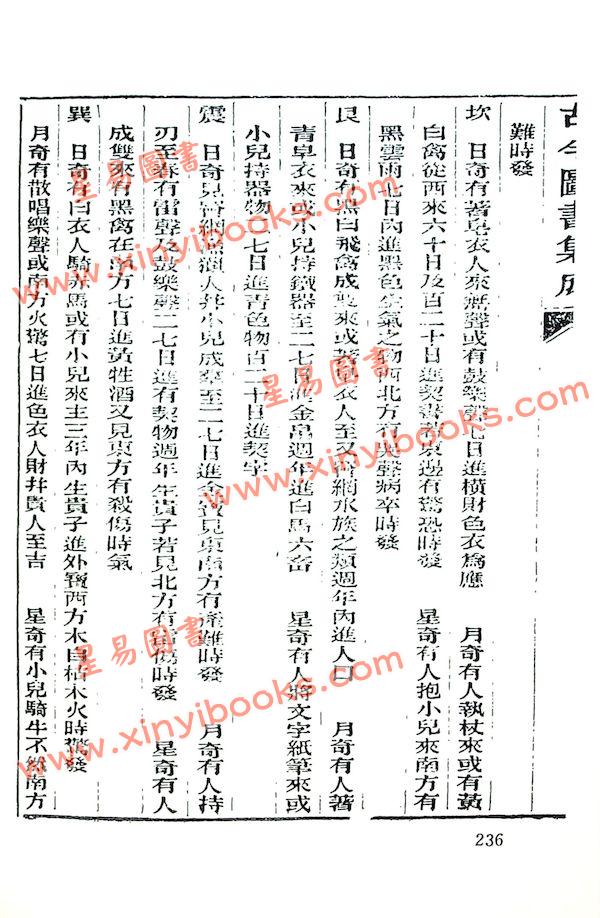 古今圖書集成
難時發
坎 日奇有著皂衣人來無聲或有鼓樂聲七日進橫財色衣為應 月奇有人執杖來或有黃
白禽從西來六十日及百二十日進契書有東邊有驚恐時發 星奇有人抱小兒來南方有
黑雲雨七日內進黑色生氣之物西北方有哭聲病卒時發
艮 日奇有黑白飛禽成雙來或著皂衣人至又罾網水族之類週年內進人口 月奇有人著
青皁衣來或小兒持鐵器至二七日進金帛週年進白馬六畜 星奇有人將文字紙筆來或
小兒持器物二七日進青色物百二十日進契字
震 日奇見罾網漁獵人并小兒成羣至二七日進金貨見東南方有產難時發 月奇有人持
刃至春有雷聲及鼓樂聲二七日進有契物週年生貴子若見北方有當傷時發 星奇有人
成雙來有黑禽在東方七日進黃牲酒又見東方有殺傷時氣
巽 日奇有白衣人騎赤馬或有小兒來主三年內生貴子進外寶西方木自枯木火時驚發
月奇有散唱樂聲或南方火驚七日進色衣人財并貴人至吉 星奇有小兒騎牛不絲南方
236
星易圖書
www.xinyibooks.com
星易圖書
www.xinyibooks.com
星易圖書
www.xinyibooks.com